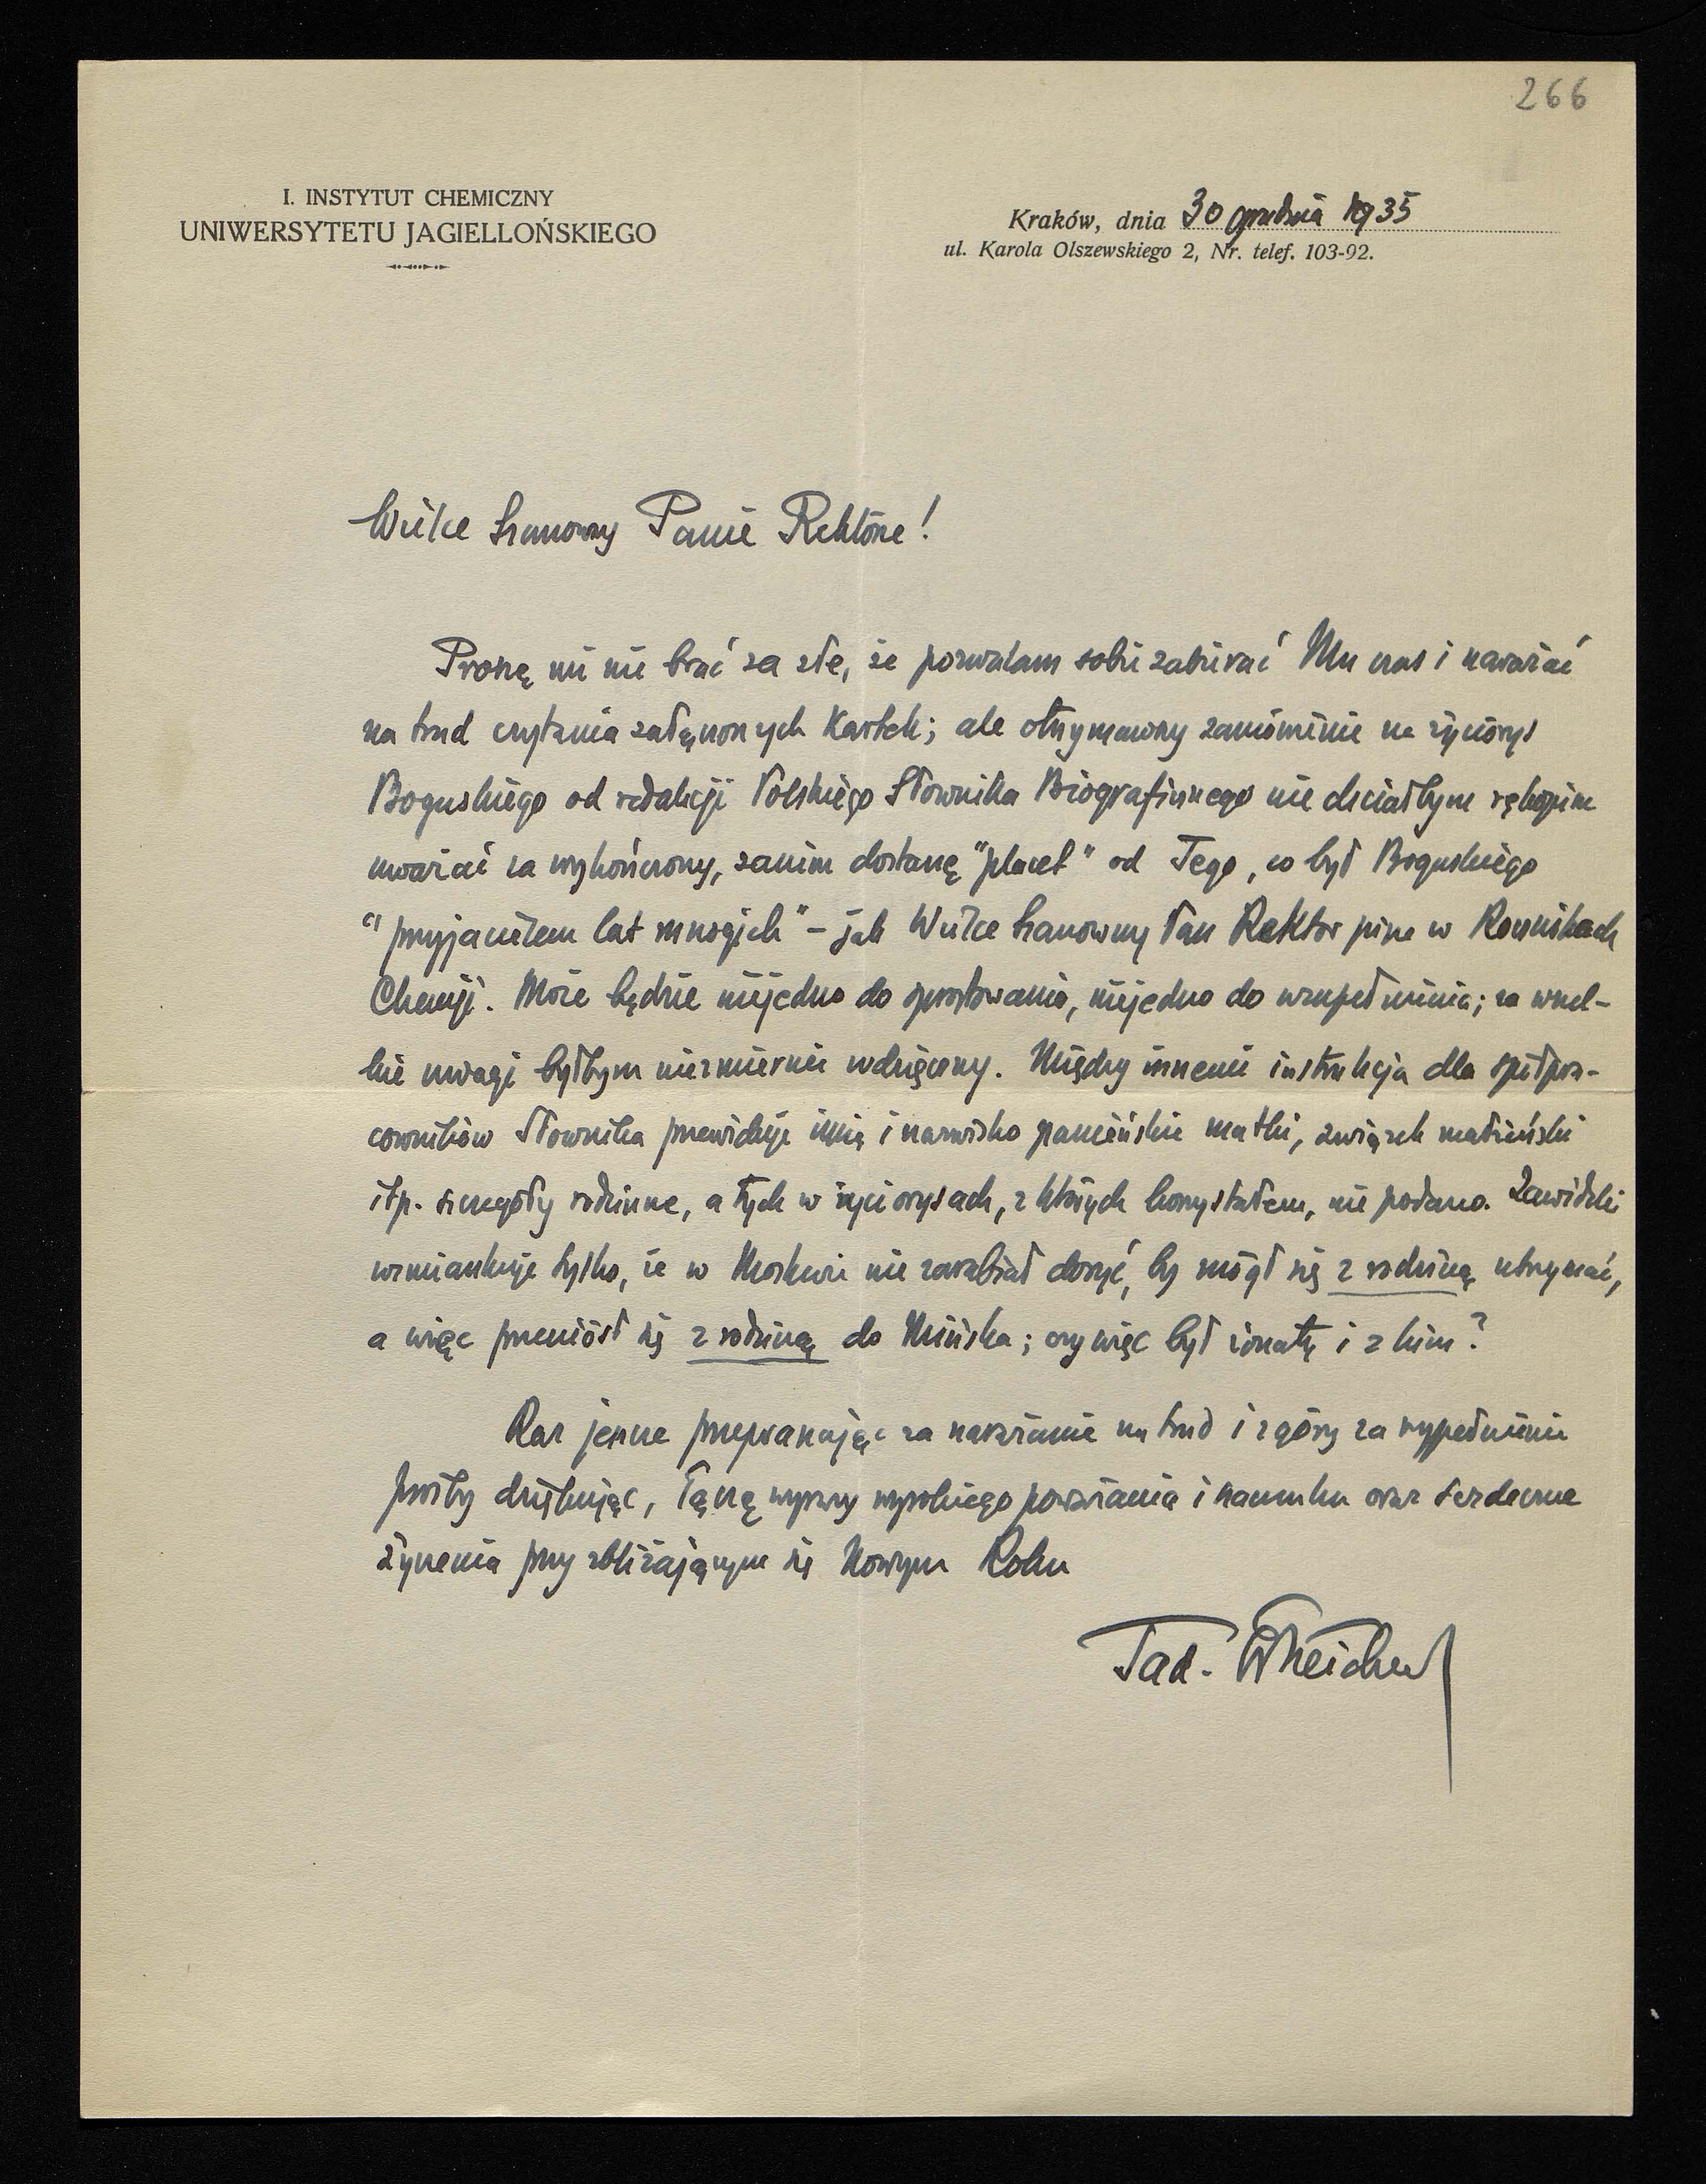 266
I. INSTYTUT CHEMICZNY
UNIWERSYTETU JAGIELLOŃSKIEGO
Kraków, dnia 30 grudnia 1935
ul. Karola Olszewskiego 2, Nr. telef. 103-92.
Wielce Szanowny Panie Rektorze!
Proszę mi nie brać za złe, że pozwalam sobie zabierać Mu czas i narażać
na trud czytania załączonych kartek; ale otrzymawszy zamówienie na życiorys
Boguskiego od redakcji Polskiego Słownika Biograficznego nie chciałbym rękopisu
uważać za wykończony, zanim dostanę "placet" od Tego, co był Boguskiego
"przyjacielem lat mnogich" – jak Wielce Szanowny Pan Rektor pisze w Rocznikach
Chemji. Może będzie niejedno do sprostowania, niejedno do uzupełnienia; za wszel-
kie uwagi byłbym niezmiernie wdzięczny. Między innemi instrukcja dla spółpra-
cowników Słownika przewiduje imię i nazwisko panieńskie matki, związek małżeński
itp. szczegóły rodzinne, a tych w życiorysach, z których korzystałem, nie podano. Zawidzki
wzmiankuje tylko, że w Moskwie nie zarabiał dosyć, by mógł się z rodziną utrzymać,
a więc przeniósł się z rodziną do Mińska; czy więc był żonaty i z kim?
Raz jeszcze przepraszając za narażanie na trud i zgóry za wypełnienie
prośby dziękując, łączę wyrazy wysokiego poważania i szacunku oraz serdeczne
życzenia przy zbliżającym się Nowym Roku
Tad. Estreicher